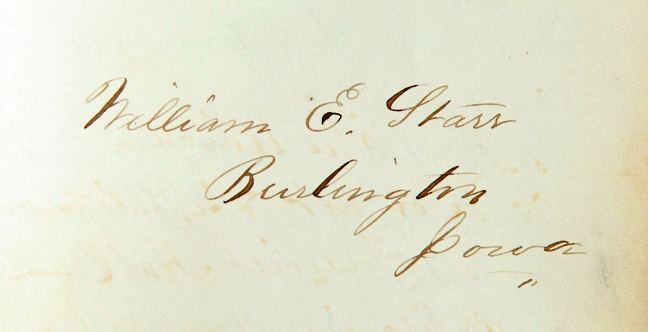 William E. Starr
Burlington
Iowa